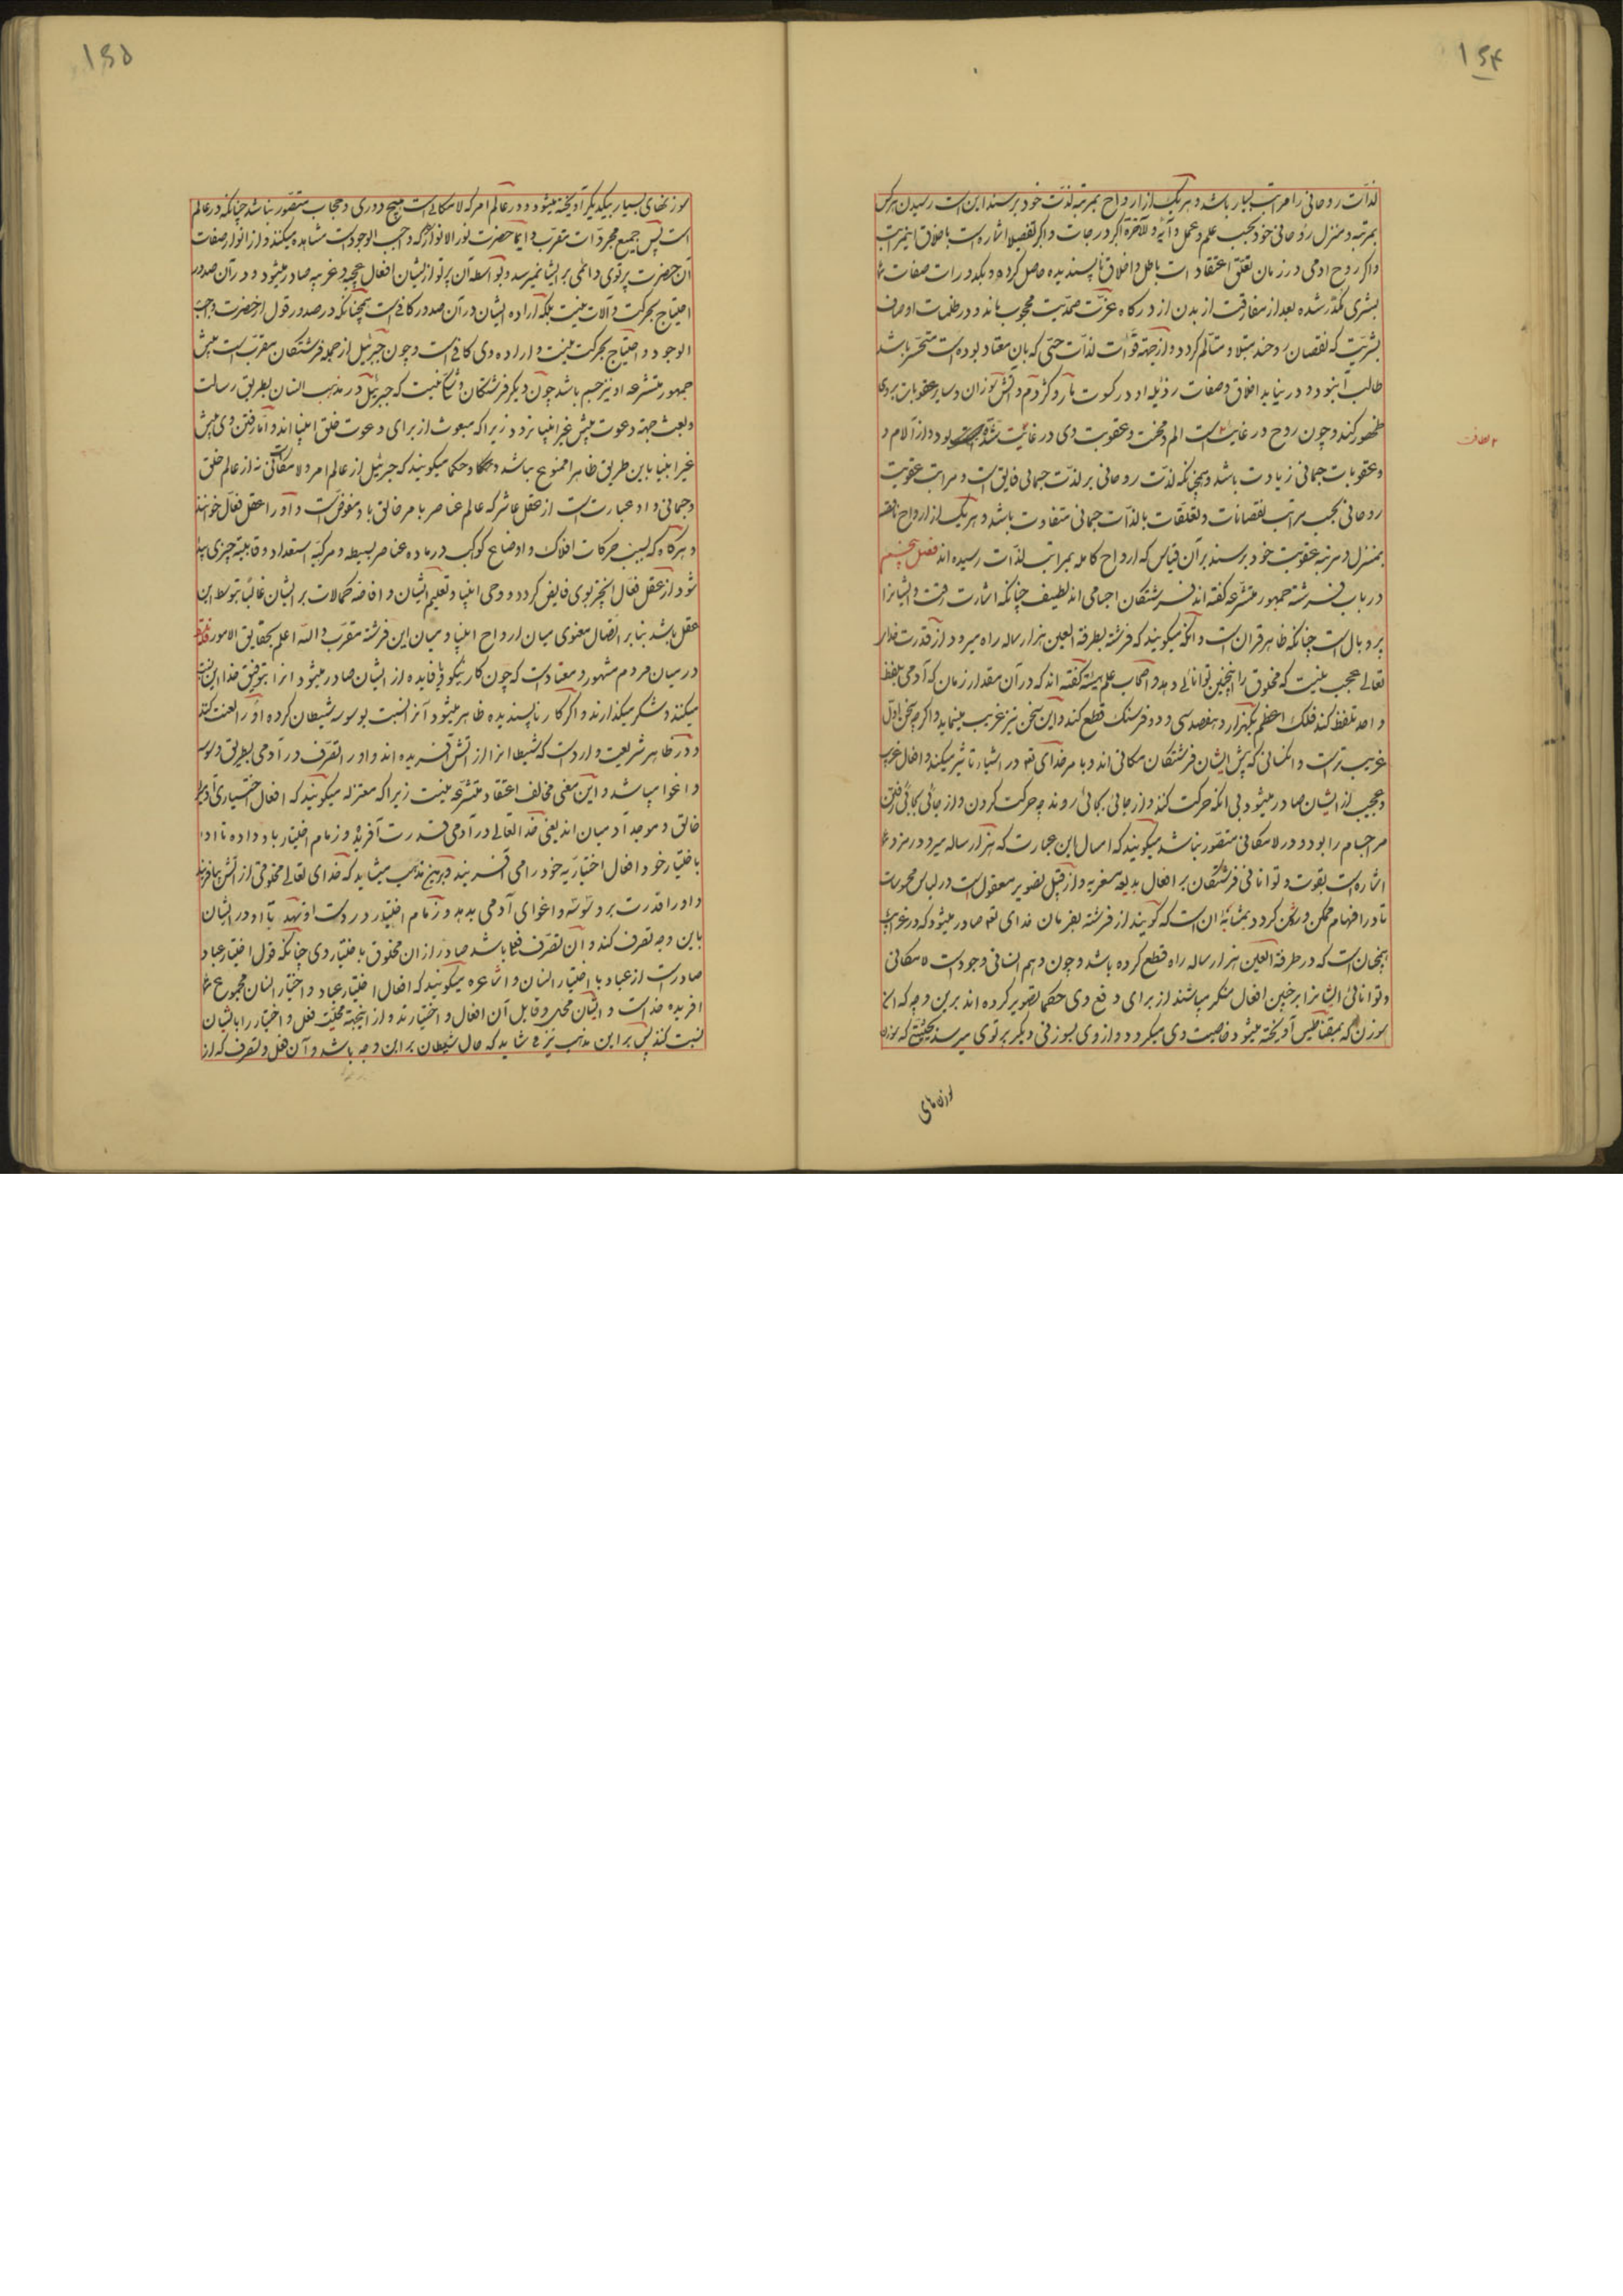 ۱۶۴
لذات روحانی را مراتب بسیار باشد و هر یک از ارواح بمرتبه لذت خود برسند این است رسیدن هر کس
بمرتبه و منزل روحانی خود بحسب علم و عمل و آیه و للآخرة اکبر درجات و اکبر تفضیلا اشارت باین مراتب
و اگر روح ادمی در زمان تعلق اعتقادات باطل و اخلاق ناپسندیده حاصل کرده و بکدورات صفات
بشری مکدر شده بعد از مفارقت از بدن از درکاه عزت صمدیت محجوب ماند و در ظلمات اوصاف
بشریت که نقصان روحند مبتلا و متألم کردد و از جهة فوات لذات حسی که بان معتاد بوده است متحسر باشد
طالب آنبود و در نیابد اخلاق و صفات رذیله او در کسوت مار و کژدم و آتش سوزان و سایر عقوبات بروی
ظهور کند و چون روح در غایت الم و محنت و عقوبت وی در غایت شدت بود و از آلام و
و عقوبات جسمانی زیادت باشد و همچنانکه لذت روحانی بر لذت جسمانی فایق است و مراتب عقوبت
روحانی بحسب مراتب نقصانات و تعلقات بالذات جسمانی متفاوت باشد و هر یک از ارواح ناقصه
بمنزل و مرتبه عقوبت خود برسند بر آن قیاس که ارواح کامله بمراتب لذات رسیده اند فصل پنجم
در باب فرشته جمهور متشرعه کفته اند فرشتکان اجسامی اند لطیف چنانکه اشارت رفت و ایشانرا
پر و بال است چنانکه ظاهر قران است و آنکه میکویند که فرشته بطرفة العین هزار ساله راه میرود از قدرت خدای
تعالی عجب نیست که مخلوق را اینچنین توانائی دهد و اصحاب علم هیئة کفته اند که در آن مقدار زمان که آدمی تلفظ
واحد تلفظ کند فلک اعظم یکهزار و هفصد سی و دو فرسنک قطع کند و این سخن نیز غریب مینماید و اکرچه سخن اول
غریب تر است و انکسانی که پیش ایشان فرشتکان مکانی اند و با مر خدای تعه در اشیاء تاثیر میکنند و افعال غریب
و عجیب از ایشان صادر میشود بی آنکه حرکت کنند و از جائی بجائی روند چه حرکت کردن و از جائی بجائی رفتن
مر جسام را بود و در لامکانی متصور نباشد میکویند که امثال این عبارت که هزار ساله میرود رمز و
اشارت بقوت و توانائی فرشتکان بر افعال بدیعه و غریبه و از قبیل تصویر معقول است در لباس محسوسات
تا در افهام ممکن و روشن کردد بمثابه آن است که کویند از فرشته بفرمان خدای تعه صادر میشود که در غرابت
همچنان است که در طرفة العین هزار ساله راه قطع کرده باشد و چون وهم انسانی وجودات لامکانی
و توانائی ایشانرا بر چنین افعال منکر میباشند از برای دفع وی حکما تصویر کرده اند برین وجه که انکه
سوزن که بمقناطیس آویخته میشود خاصیت وی میکرد و از وی بسوزنی دیکر پرتوی میرسد بحیثیتی که سوزن
سوزنهای
۱۶۵
سوزنهای بسیار بیکدیکر آویخته میشود و در عالم امر که لامکانی است هیچ دوری و حجاب متصور نباشد چنانکه در عالم
است پس جمیع مجردات مقرب دایما حضرت نور الانوار را که واجب الوجود است مشاهده میکنند و از انوار صفات
آن حضرت پرتوی دائمی بر ایشان میرسد و بواسطه آن پرتو از ایشان افعال عجیبه و غریبه صادر میشود و در آن صدور
احتیاج بحرکت و آلات نیست بلکه اراده ایشان در آن صدور کافی است همچنانکه در صدور قول از حضرت واجب
الوجود و احتیاج بحرکت نیست و اراده وی کافی است و چون جبرئیل از جمله فرشتکان مقرب است پیش
جمهور متشرعه او نیز جسم باشد چون دیکر فرشتکان و شک نیست که جبرئیل در مذهب انسان بطریق رسالت
و بعث جهة دعوت پیش غیر انبیا نرود زیرا که مبعوث از برای دعوت خلق انبیا اند و اما رفتن وی پیش
غیر انبیا باین طریق ظاهرا ممنوع نباشد و حکما میکویند که جبرئیل از عالم امر و لامکانی نه از عالم خلق
و جسمانی و او عبارت است از عقل عاشر که عالم عناصر با مر خالق باو مفوض است و او را عقل فعال خوانند
و هرکاه که بسبب حرکات افلاک و اوضاع کواکب در ماده عناصر بسیطه و مرکبه استعداد و قابلیة چیزی پیدا
شود از عقل فعال آنچیز بوی فایض کردد و وحی انبیا و تعلیم ایشان و افاضه کمالات بر ایشان غالبا بتوسط این
عقل باشد بنا بر اتصال معنوی میان ارواح انبیا و میان این فرشته مقرب و الله اعلم بحقایق الامور
در میان مردم مشهور و معتاد است که چون کار نیکو و با فایده از ایشان صادر میشود انرا بتوفیق خدا نسبت
میکنند و شکر میکذارند و اکر کار ناپسندیده ظاهر میشود آنرا نسبت بوسوسه شیطان کرده او را لعنت کنند
و در ظاهر شریعت وارد است که شیطانرا از آتش آفریده اند و او را تصرف در آدمی بطریق وسوسه
و اغوا میباشد و این معنی مخالف اعتقاد متشرعه نیست زیرا که معتزله میکویند که افعال اختیاری آدمی را
خالق و موجد آدمیان اند یعنی خدا تعالی در آدمی قدرت آفریده و زمام اختیار باو داده تا او
باختیار خود افعال اختیاریه خود را می آفریند و برین مذهب میشاید که خدای تعالی مخلوقی از آتش بیافریند
و او را قدرت بر وسوسه و اغوای آدمی بدهد و زمام اختیار در دست او نهد تا او در ایشان
باین وجه تصرف کند و آن تصرف فعلا باشد صادر از ان مخلوق باختیار وی چنانکه قول اختیار عباد
صادر است از عباد با اختیار انسان و اشاعره میکویند که افعال اختیار عباد و اختیار انسان مجموع
افریده خداست و ایشان محل و قابل آن افعال و اختیارند و از اینجهة محلیت فعل و اختیار را بایشان
نسبت کنند پس بر این مذهب نیز شاید که حال شیطان بر این وجه باشد و آن فعل و تصرف که از